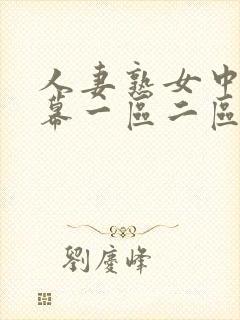 人妻熟女中
幕一區二區
劉慶峰